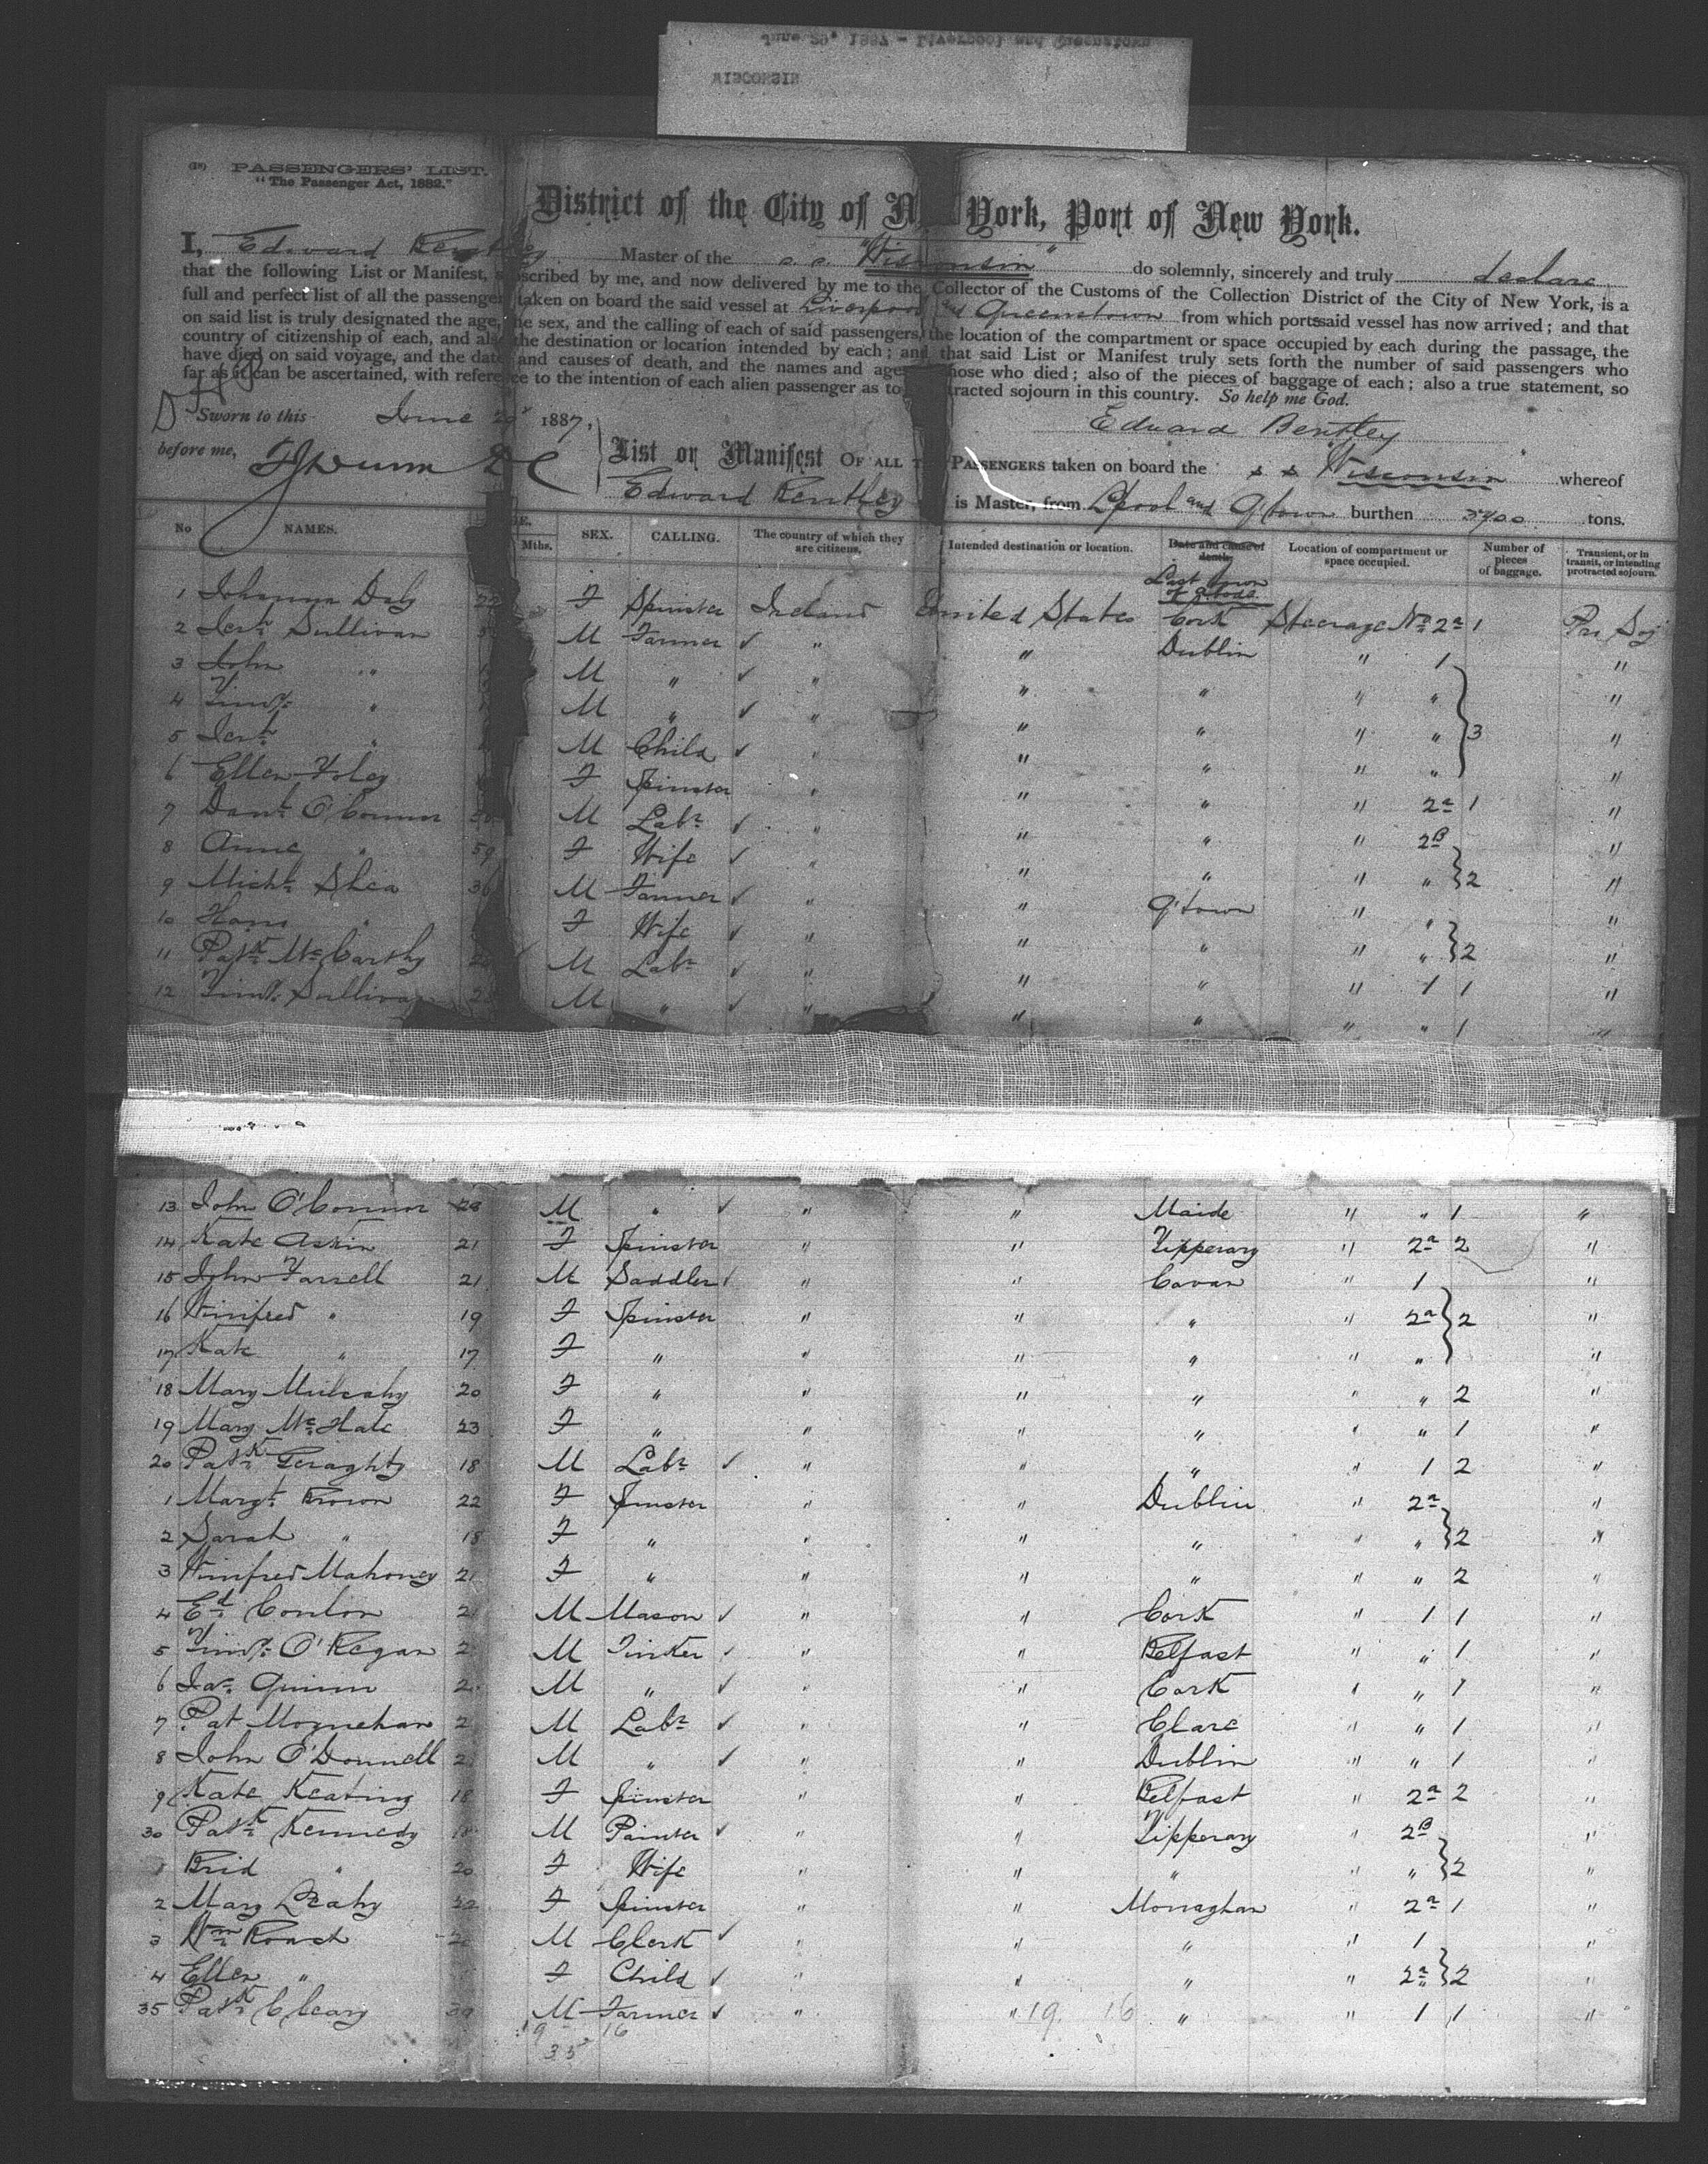 WISCONSIN
PASSENGERS' LIST.
"The Passenger Act, 1882."
District of the City of New York, Port of New York.
I, Edward Bentley Master of the s.s. "Wisconsin" do solemnly, sincerely and truly declare
that the following List or Manifest, subscribed by me, and now delivered by me to the Collector of the Customs of the Collection District of the City of New York, is a
full and perfect list of all the passengers taken on board the said vessel at Liverpool and Queenstown from which ports said vessel has now arrived; and that
on said list is truly designated the age, the sex, and the calling of each of said passengers, the location of the compartment or space occupied by each during the passage, the
country of citizenship of each, and also the destination or location intended by each; and that said List or Manifest truly sets forth the number of said passengers who
have died on said voyage, and the date and causes of death, and the names and ages of those who died; also of the pieces of baggage of each; also a true statement, so
far as it can be ascertained, with reference to the intention of each alien passenger as to protracted sojourn in this country. So help me God.
Sworn to this June 29 1887,
Edward Bentley
before me,
List or Manifest OF ALL THE PASSENGERS taken on board the s s Wisconsin whereof
Edward Bentley is Master, from L'pool and Q'town burthen 3700 tons.
No NAMES. Mths. SEX. CALLING. The country of which they are citizens. Intended destination or location. Date and cause of death. Location of compartment or space occupied. Number of pieces of baggage. Transient, or in transit, or intending protracted sojourn.
Last town of abode
1 Johanna Daly 22 F Spinster Ireland United States Cork Steerage No 2a 1 Pro Soj
2 Jerh Sullivan M Farmer ✓ " " Dublin " 1 "
3 John " M " ✓ " " " " " "
4 Timy " M " ✓ " " " " " 3 "
5 Jerh " M Child ✓ " " " " " "
6 Ellen Foley F Spinster " " " " 2a 1 "
7 Danl O'Connor M Labr ✓ " " " " 2B "
8 Anne " 59 F Wife ✓ " " " " " 2 "
9 Michl Shea 36 M Farmer ✓ " " Q'town " " "
10 " F Wife ✓ " " " " " 2 "
11 Patk McCarthy M Labr ✓ " " " " 1 1 "
12 Timy Sullivan M " ✓ " " " " " 1 "
13 John O'Connor 28 M " ✓ " " " " 1 "
14 Kate Askin 21 F Spinster " " Tipperary " 2a 2 "
15 John Farrell 21 M Saddler ✓ " " Cavan " 1 "
16 Winifred " 19 F Spinster " " " " 2a 2 "
17 Kate " 17 F " " " " " " "
18 Mary Mulcahy 20 F " " " " " " 2 "
19 Mary McHale 23 F " " " " " " 1 "
20 Patk Geraghty 18 M Labr ✓ " " " " 1 2 "
1 Margt Brown 22 F Spinster " " Dublin " 2a "
2 Sarah " 18 F " " " " " " 2 "
3 Winifred Mahoney 21 F " " " " " " 2 "
4 Ed Conlon 21 M Mason ✓ " " Cork " 1 1 "
5 Timy O'Regan M Tinker ✓ " " Belfast " " 1 "
6 Jas Quinn M " ✓ " " Cork " " 1 "
7 Pat Moynehan M Labr ✓ " " Clare " " 1 "
8 John O'Donnell M " ✓ " " Dublin " " 1 "
9 Kate Keating 18 F Spinster " " Belfast " 2a 2 "
30 Patk Kennedy M Painter ✓ " " Tipperary " 2B "
1 Brid " 20 F Wife " " " " " 2 "
2 Mary Leahy 22 F Spinster " " Monaghan " 2a 1 "
3 Wm Roach M Clerk ✓ " " " " 1 "
4 Ellen " F Child ✓ " " " " 2a 2 "
35 Patk Cleary M Farmer ✓ " " 19 16 " " 1 1 "
19 16
35